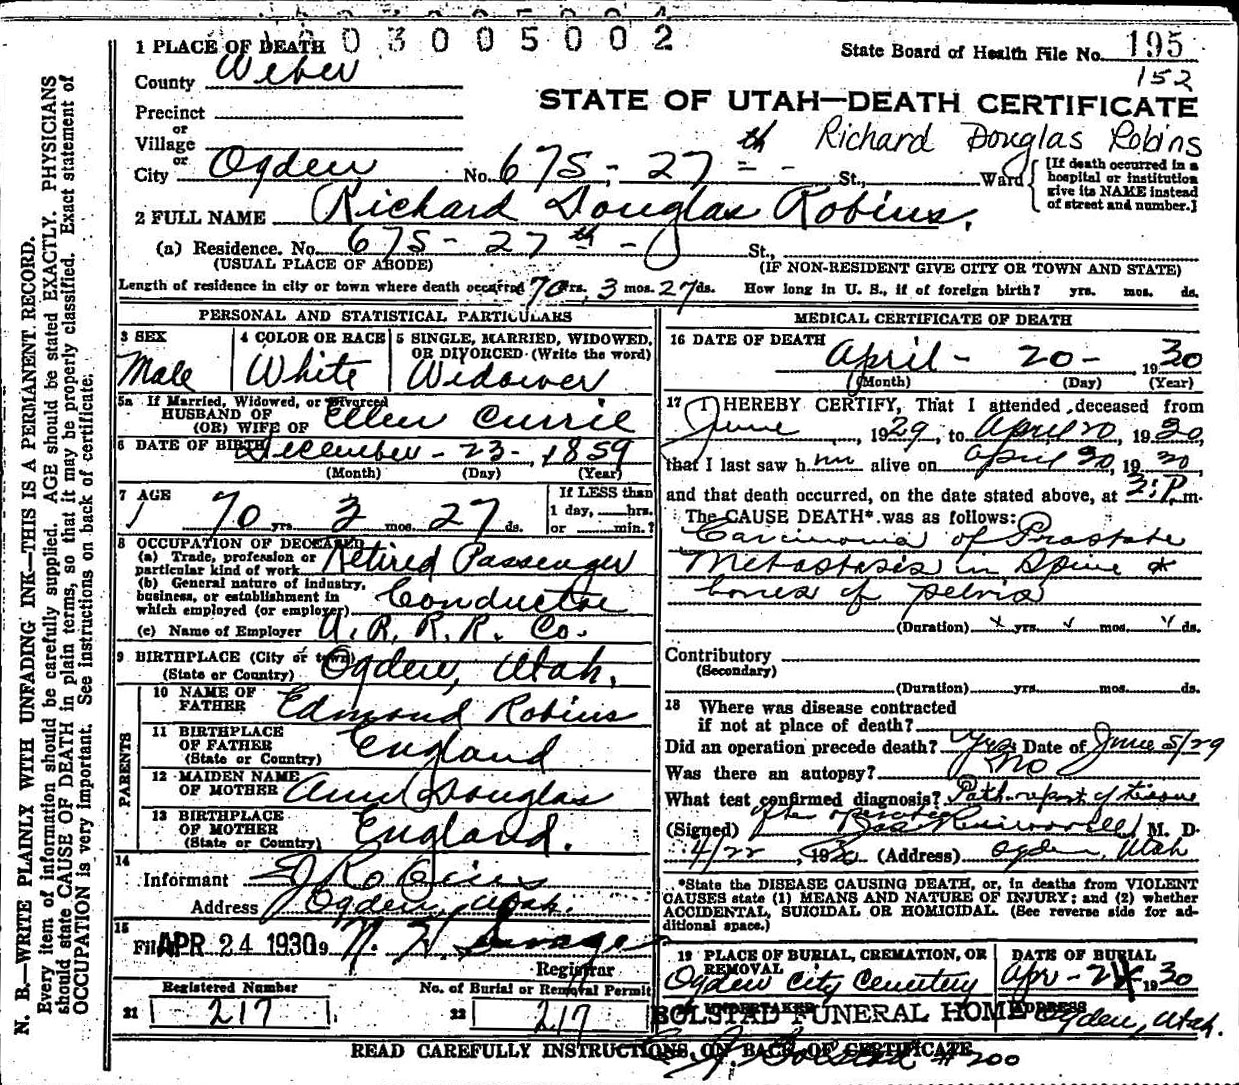 003005002
1 PLACE OF DEATH
State Board of Health File No. 195
County Weber
152
STATE OF UTAH—DEATH CERTIFICATE
Precinct
or
Village
or
Richard Douglas Robins
City Ogden No. 675 - 27th - St., Ward
[If death occurred in a hospital or institution give its NAME instead of street and number.]
2 FULL NAME Richard Douglas Robins.
(a) Residence. No. 675 - 27th - St.,
(USUAL PLACE OF ABODE) (IF NON-RESIDENT GIVE CITY OR TOWN AND STATE)
Length of residence in city or town where death occurred 70 yrs. 3 mos. 27 ds. How long in U. S., if of foreign birth? yrs. mos. ds.
PERSONAL AND STATISTICAL PARTICULARS
3 SEX Male
4 COLOR OR RACE White
5 SINGLE, MARRIED, WIDOWED, OR DIVORCED (Write the word) Widower
5a If Married, Widowed, or Divorced
HUSBAND OF
(OR) WIFE OF Ellen Currie
6 DATE OF BIRTH December - 23 - 1859
(Month) (Day) (Year)
7 AGE 70 yrs. 3 mos. 27 ds.
If LESS than
1 day, hrs.
or min.?
8 OCCUPATION OF DECEASED
(a) Trade, profession or
particular kind of work Retired Passenger
(b) General nature of industry,
business, or establishment in
which employed (or employer) Conductor
(c) Name of Employer U. P. R. R. Co.
9 BIRTHPLACE (City or town) Ogden, Utah.
(State or Country)
PARENTS
10 NAME OF
FATHER Edmond Robins
11 BIRTHPLACE
OF FATHER England
(State or Country)
12 MAIDEN NAME
OF MOTHER Ann Douglas
13 BIRTHPLACE
OF MOTHER England.
(State or Country)
14
Informant Robins
Address Ogden, Utah.
15
Filed APR 24 1930 19
Registrar
Registered Number No. of Burial or Removal Permit
21 217 22 217
MEDICAL CERTIFICATE OF DEATH
16 DATE OF DEATH April - 20 - 1930
(Month) (Day) (Year)
17 I HEREBY CERTIFY, That I attended deceased from
June, 1929, to April 20, 1930,
that I last saw him alive on April 20, 1930
and that death occurred, on the date stated above, at 3:P.m.
The CAUSE DEATH* was as follows:
Carcinoma of Prostate
Metastasis in Spine &
bones of pelvis
(Duration) yrs. mos. ds.
Contributory
(Secondary)
(Duration) yrs. mos. ds.
18 Where was disease contracted
if not at place of death?
Did an operation precede death? Yes Date of June 5/29
Was there an autopsy? No
What test confirmed diagnosis? Path. report of tissue
after operation
(Signed) M. D.
4/22, 1930 (Address) Ogden, Utah
*State the DISEASE CAUSING DEATH, or, in deaths from VIOLENT
CAUSES state (1) MEANS AND NATURE OF INJURY; and (2) whether
ACCIDENTAL, SUICIDAL OR HOMICIDAL. (See reverse side for ad-
ditional space.)
19 PLACE OF BURIAL, CREMATION, OR
REMOVAL
Ogden City Cemetery
DATE OF BURIAL
Apr - 24 1930
UNDERTAKER ADDRESS
BOLSTAD FUNERAL HOME Ogden, Utah.
READ CAREFULLY INSTRUCTIONS ON BACK OF CERTIFICATE
Bolstad #200
N. B.—WRITE PLAINLY WITH UNFADING INK—THIS IS A PERMANENT RECORD.
Every item of information should be carefully supplied. AGE should be stated EXACTLY. PHYSICIANS
should state CAUSE OF DEATH in plain terms, so that it may be properly classified. Exact statement of
OCCUPATION is very important. See instructions on back of certificate.